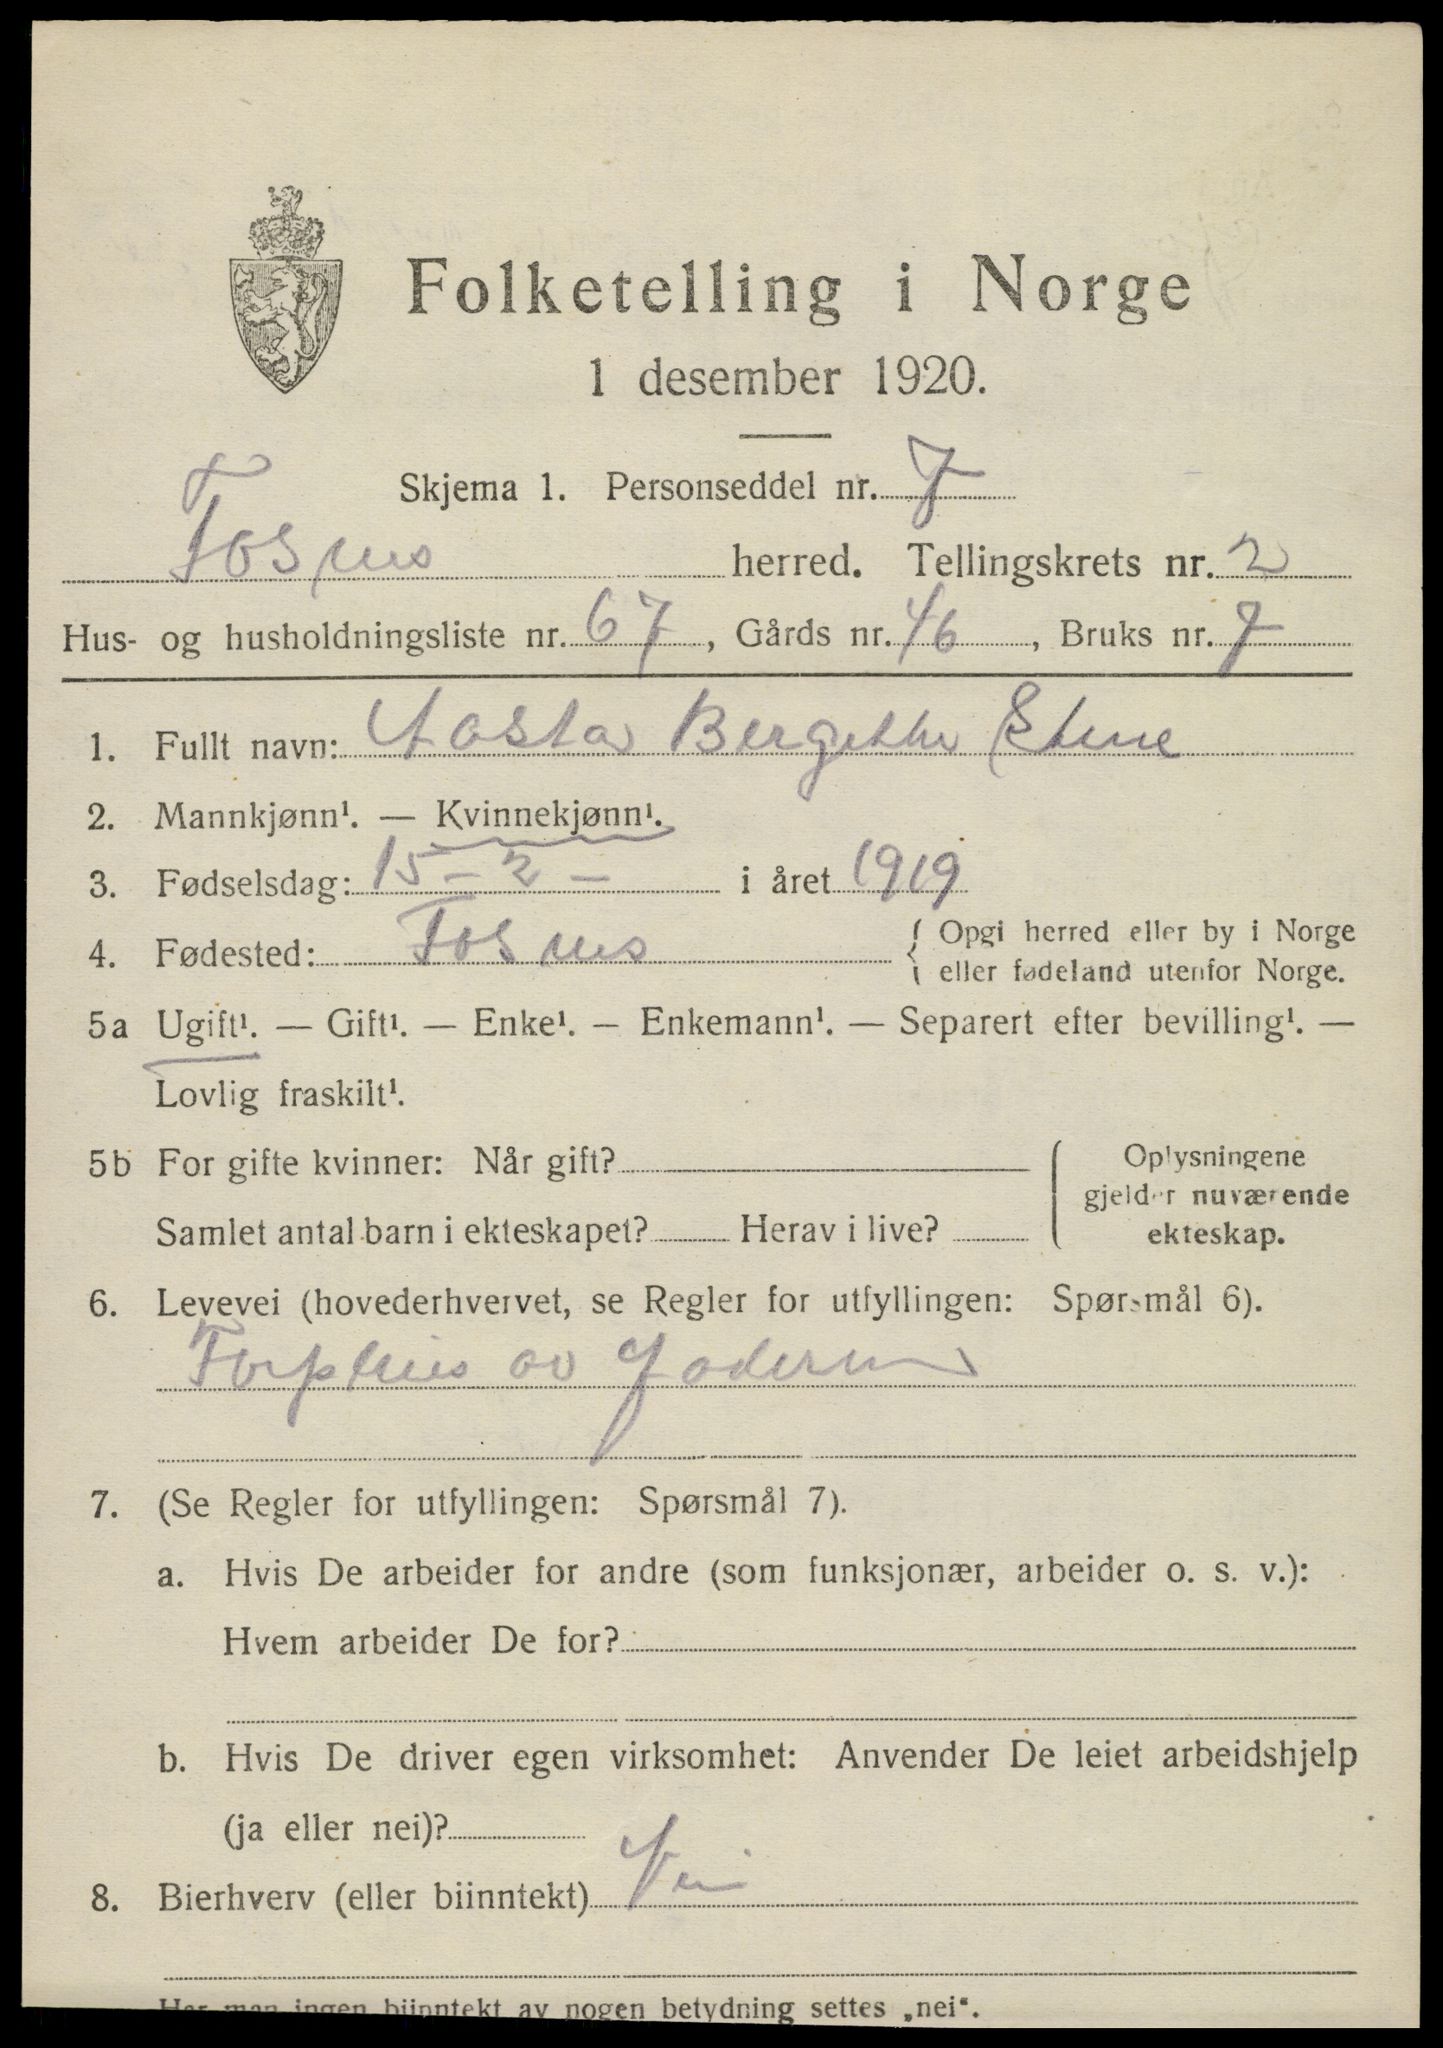 Folketelling i Norge
1 desember 1920.
Skjema 1. Personseddel nr. 7
Fosnes herred. Tellingskrets nr. 2
Hus- og husholdningsliste nr. 67, Gårds nr. 46, Bruks nr. 7
1. Fullt navn: Aasta Bergitthe Stene
2. Mannkjønn¹. — Kvinnekjønn¹.
3. Fødselsdag: 15-2- i året 1919
4. Fødested: Fosnes { Opgi herred eller by i Norge
eller fødeland utenfor Norge.
5a Ugift¹. — Gift¹. — Enke¹. — Enkemann¹. — Separert efter bevilling¹. —
Lovlig fraskilt¹.
5b For gifte kvinner: Når gift?
Samlet antal barn i ekteskapet? Herav i live?
{ Oplysningene
gjelder nuværende
ekteskap.
6. Levevei (hovederhvervet, se Regler for utfyllingen: Spørsmål 6).
Forpleies av faderen
7. (Se Regler for utfyllingen: Spørsmål 7).
a. Hvis De arbeider for andre (som funksjonær, arbeider o. s. v.):
Hvem arbeider De for?
b. Hvis De driver egen virksomhet: Anvender De leiet arbeidshjelp
(ja eller nei)?
8. Bierhverv (eller biinntekt) Nei
Har man ingen biinntekt av nogen betydning settes „nei“.